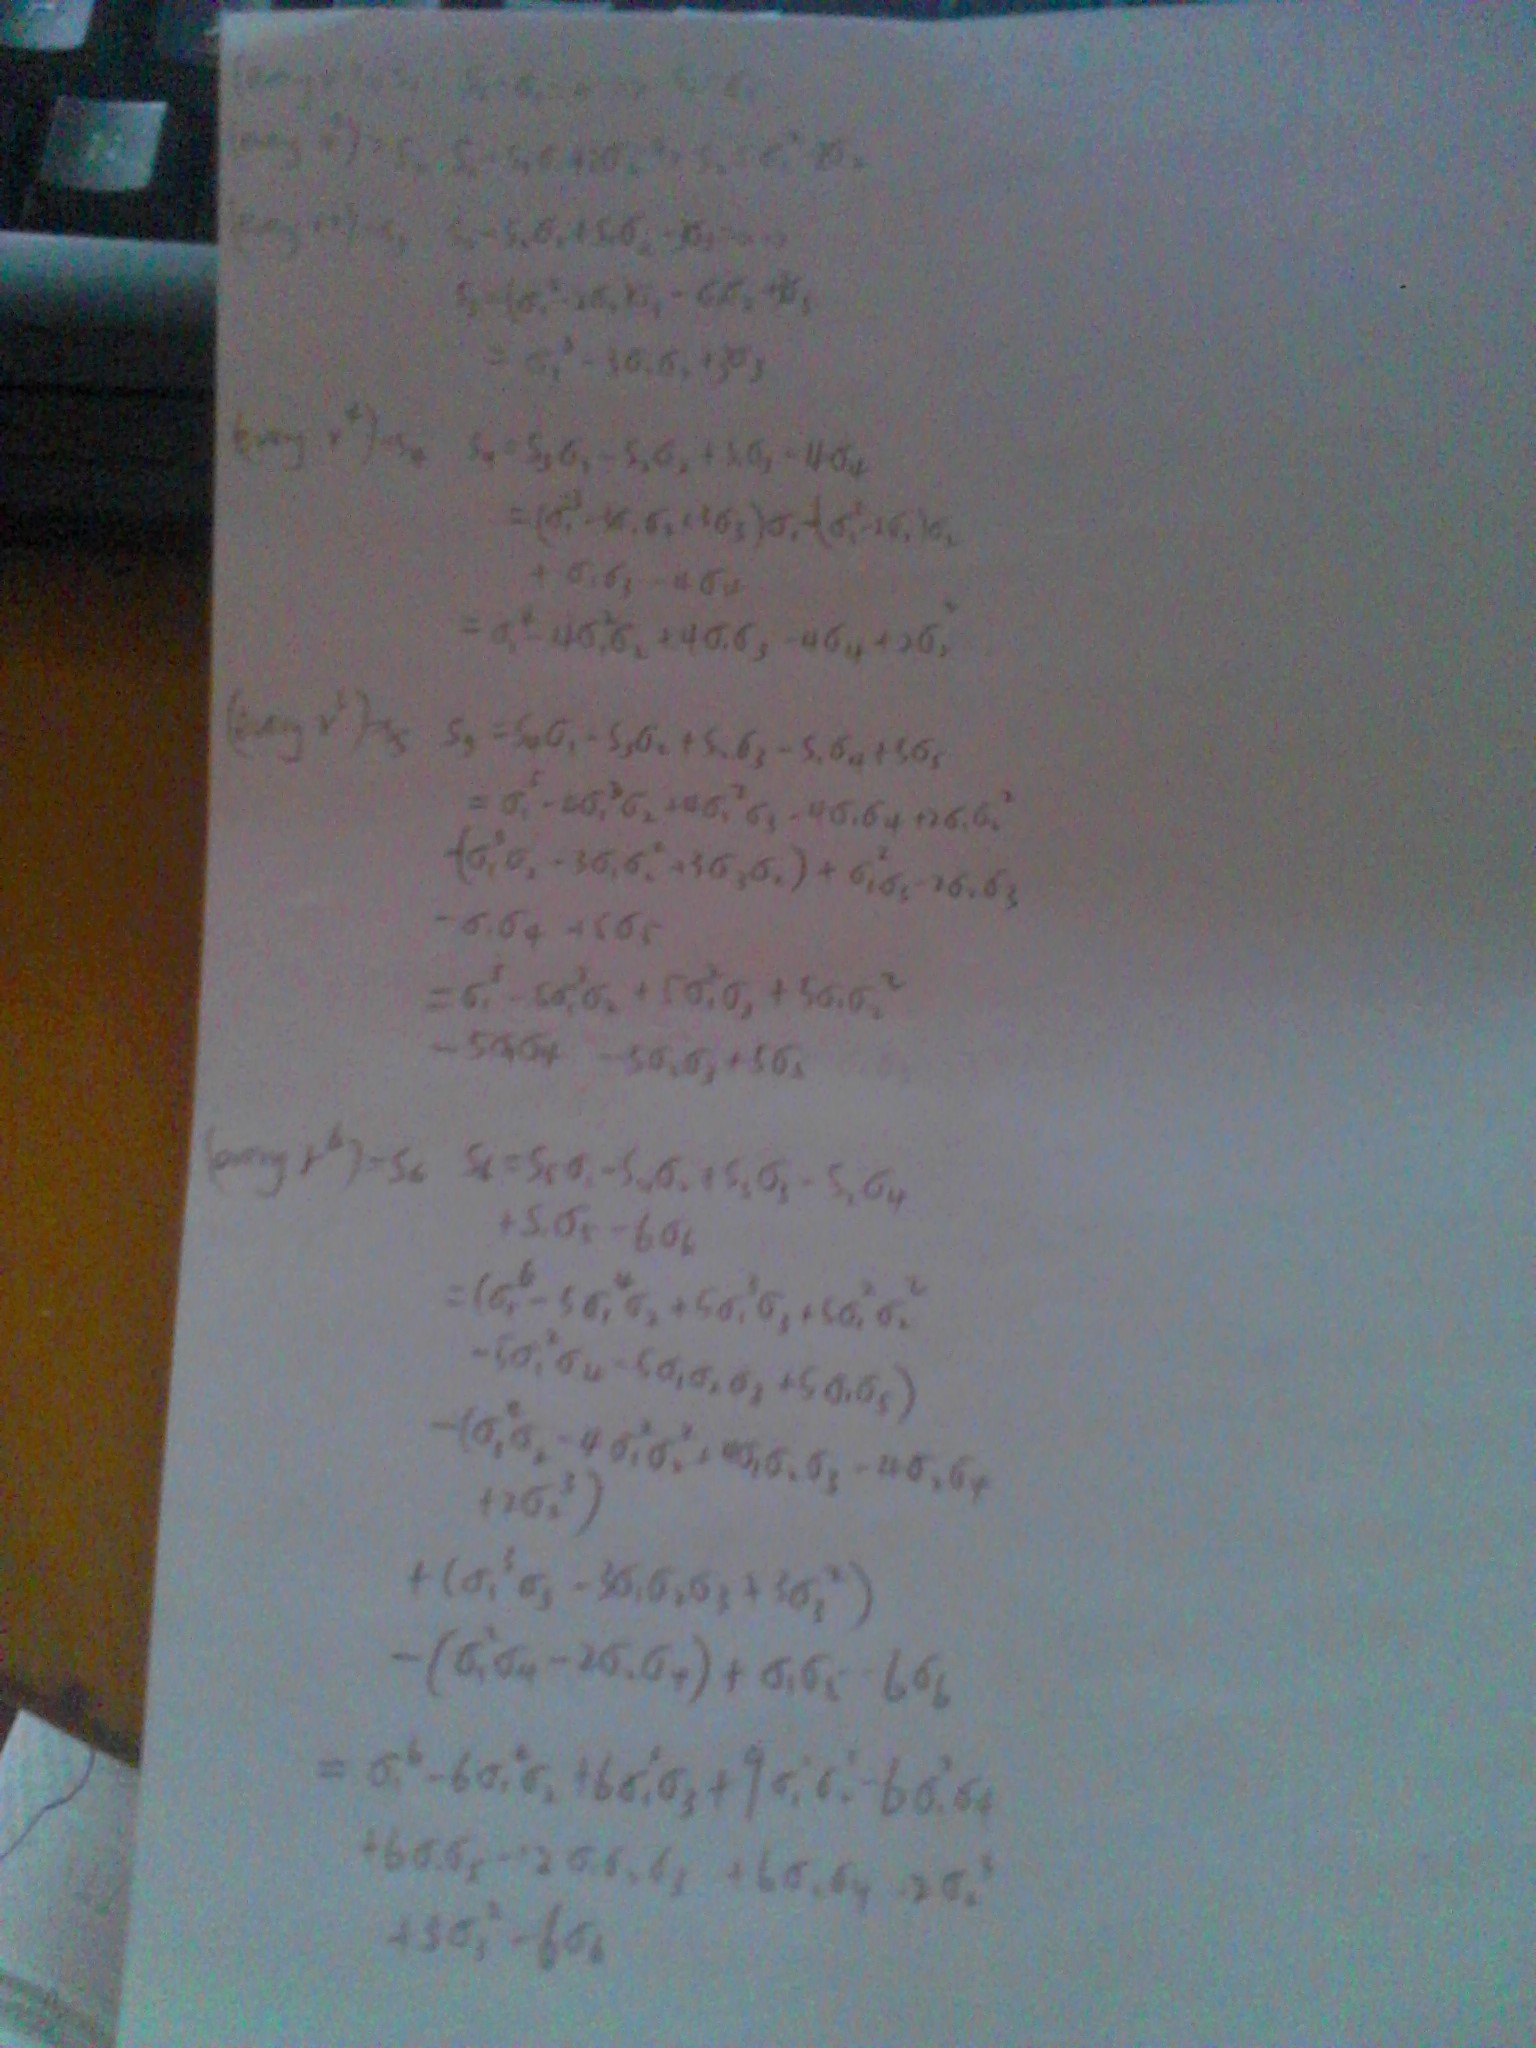 S₁ - σ₁ = 0 → S₁ = σ₁
(every r²) → S₂ S₂ - S₁σ₁ + 2σ₂ = 0 → S₂ = σ₁² - 2σ₂
(every r³) → S₃ S₃ - S₂σ₁ + S₁σ₂ - 3σ₃ = 0 →
S₃ = (σ₁² - 2σ₂)σ₁ - σ₁σ₂ + 3σ₃
= σ₁³ - 3σ₁σ₂ + 3σ₃
(every r⁴) → S₄ S₄ = S₃σ₁ - S₂σ₂ + S₁σ₃ - 4σ₄
= (σ₁³ - 3σ₁σ₂ + 3σ₃)σ₁ - (σ₁² - 2σ₂)σ₂
+ σ₁σ₃ - 4σ₄
= σ₁⁴ - 4σ₁²σ₂ + 4σ₁σ₃ - 4σ₄ + 2σ₂²
(every r⁵) → S₅ S₅ = S₄σ₁ - S₃σ₂ + S₂σ₃ - S₁σ₄ + 5σ₅
= σ₁⁵ - 4σ₁³σ₂ + 4σ₁²σ₃ - 4σ₁σ₄ + 2σ₁σ₂²
-(σ₁³σ₂ - 3σ₁σ₂² + 3σ₃σ₂) + σ₁²σ₃ - 2σ₂σ₃
- σ₁σ₄ + 5σ₅
= σ₁⁵ - 5σ₁³σ₂ + 5σ₁²σ₃ + 5σ₁σ₂²
- 5σ₁σ₄ - 5σ₂σ₃ + 5σ₅
(every r⁶) → S₆ S₆ = S₅σ₁ - S₄σ₂ + S₃σ₃ - S₂σ₄
+ S₁σ₅ - 6σ₆
= (σ₁⁶ - 5σ₁⁴σ₂ + 5σ₁³σ₃ + 5σ₁²σ₂²
- 5σ₁²σ₄ - 5σ₁σ₂σ₃ + 5σ₁σ₅)
- (σ₁⁴σ₂ - 4σ₁²σ₂² + 4σ₁σ₂σ₃ - 4σ₂σ₄
+ 2σ₂³)
+ (σ₁³σ₃ - 3σ₁σ₂σ₃ + 3σ₃²)
- (σ₁²σ₄ - 2σ₂σ₄) + σ₁σ₅ - 6σ₆
= σ₁⁶ - 6σ₁⁴σ₂ + 6σ₁³σ₃ + 9σ₁²σ₂² - 6σ₁²σ₄
+ 6σ₁σ₅ - 12σ₁σ₂σ₃ + 6σ₂σ₄ - 2σ₂³
+ 3σ₃² - 6σ₆